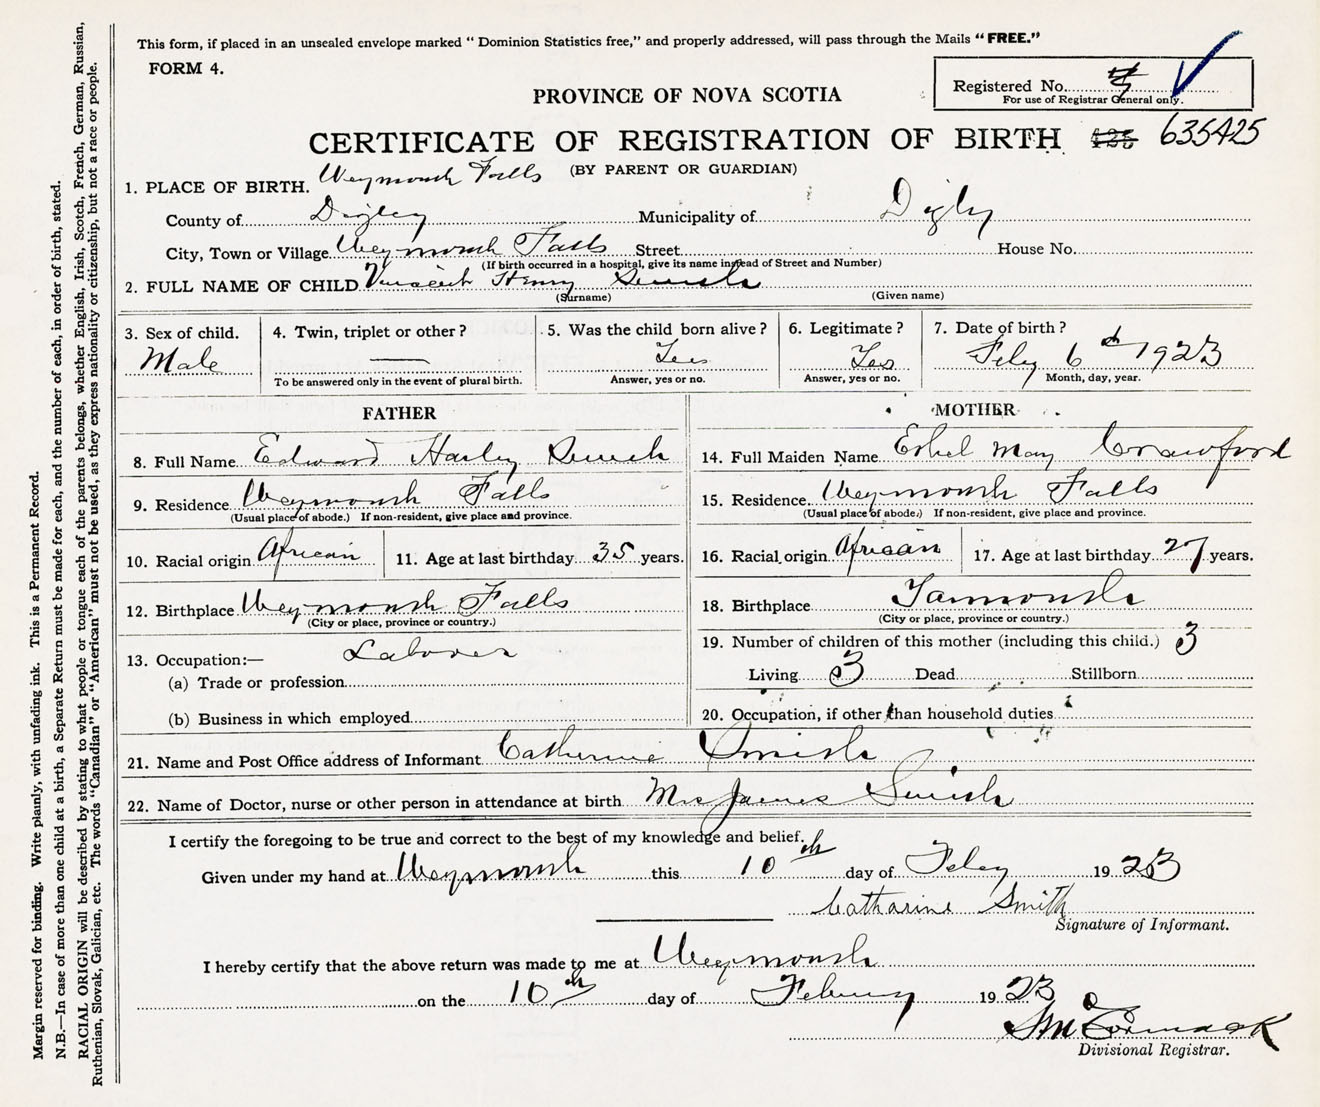 This form, if placed in an unsealed envelope marked “ Dominion Statistics free,” and properly addressed, will pass through the Mails “FREE.”
FORM 4.
Registered No.
For use of Registrar General only.
PROVINCE OF NOVA SCOTIA
CERTIFICATE OF REGISTRATION OF BIRTH 635425
(BY PARENT OR GUARDIAN)
1. PLACE OF BIRTH. Weymouth Falls
County of Digby Municipality of Digby
City, Town or Village Weymouth Falls Street House No.
(If birth occurred in a hospital, give its name instead of Street and Number)
2. FULL NAME OF CHILD Vincent Henry Smith
(Surname) (Given name)
3. Sex of child. 4. Twin, triplet or other? 5. Was the child born alive? 6. Legitimate? 7. Date of birth?
Male — Yes Yes Feby 6th 1923
To be answered only in the event of plural birth. Answer, yes or no. Answer, yes or no. Month, day, year.
FATHER MOTHER
8. Full Name Edward Harley Smith 14. Full Maiden Name Ethel May Crawford
9. Residence Weymouth Falls 15. Residence Weymouth Falls
(Usual place of abode.) If non-resident, give place and province. (Usual place of abode.) If non-resident, give place and province.
10. Racial origin African 11. Age at last birthday 35 years. 16. Racial origin African 17. Age at last birthday 27 years.
12. Birthplace Weymouth Falls 18. Birthplace Yarmouth
(City or place, province or country.) (City or place, province or country.)
13. Occupation:— Laborer 19. Number of children of this mother (including this child.) 3
(a) Trade or profession Living 3 Dead Stillborn
(b) Business in which employed 20. Occupation, if other than household duties
21. Name and Post Office address of Informant Catherine Smith
22. Name of Doctor, nurse or other person in attendance at birth Mrs James Smith
I certify the foregoing to be true and correct to the best of my knowledge and belief.
Given under my hand at Weymouth this 10th day of Feby 1923
Catharine Smith
Signature of Informant.
I hereby certify that the above return was made to me at Weymouth
on the 10th day of 1923
McCormack
Divisional Registrar.
Margin reserved for binding. Write plainly, with unfading ink. This is a Permanent Record.
N.B.—In case of more than one child at a birth, a Separate Return must be made for each, and the number of each, in order of birth, stated.
RACIAL ORIGIN will be described by stating to what people or tongue each of the parents belongs, whether English, Irish, Scotch, French, German, Russian,
Ruthenian, Slovak, Galician, etc. The words “Canadian” or “American” must not be used, as they express nationality or citizenship, but not a race or people.